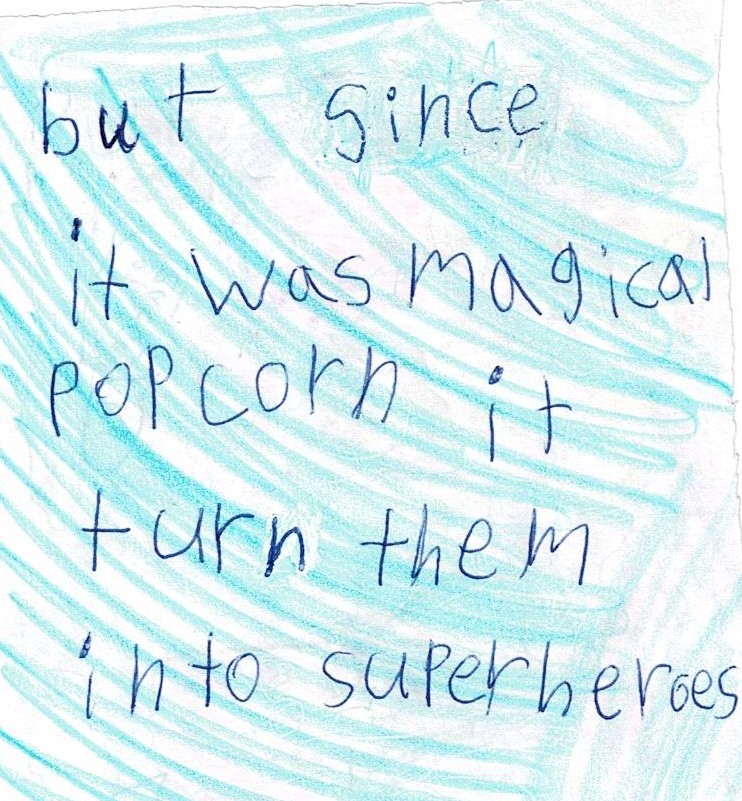 but since
it was magical
popcorn it
turn them
into superheroes